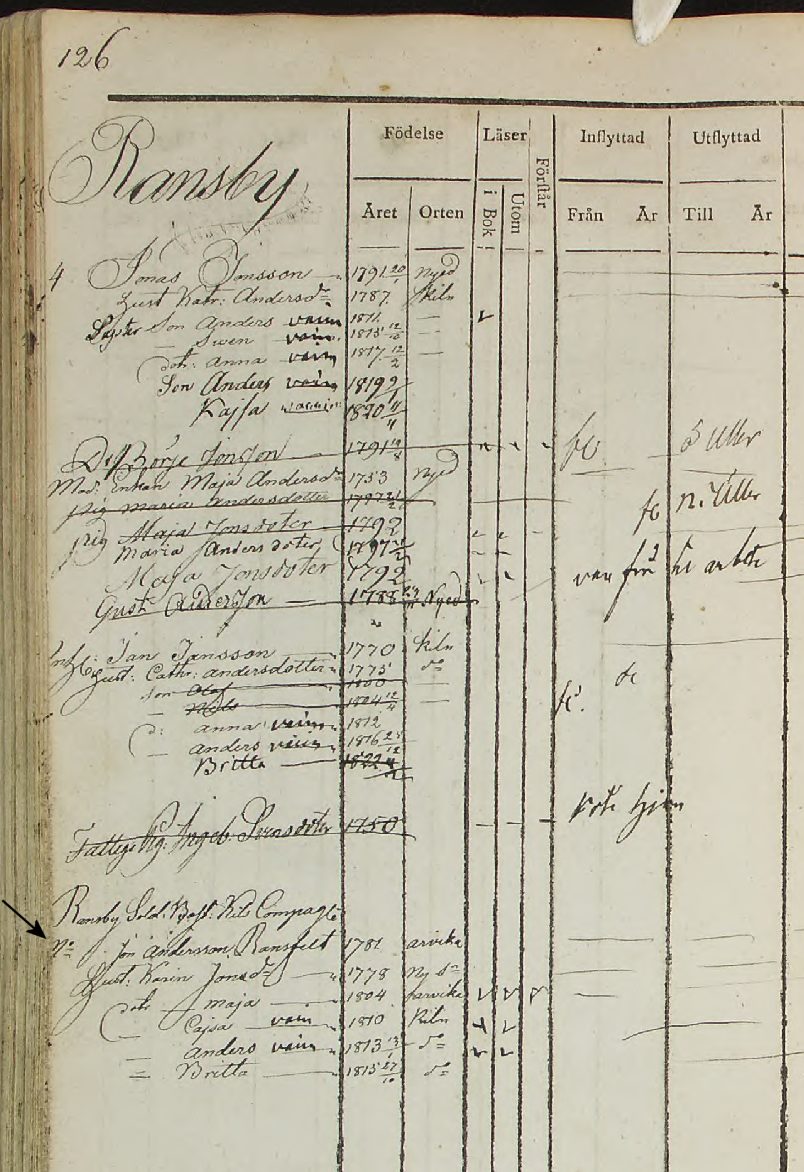 126
Ransby
Födelse Läser Förstår Inflyttad Utflyttad
Året Orten i Bok Utom Från År Till År
4 Jonas Jonsson 1791 20/1 Nyed
Hust Katr: Andersdr 1787 Kiln
Son Anders vacin 1811 —
— Swen vacin 1815 12/
dotr: Anna vacin 1817 12/2 —
Son Anders vacin 1819 9/1
Kajsa vaccin 1820 4/4
Börje Jonson 1791 fc S Uller
Enkan Maja Andersdr 1753 Nyed
pig Maria Andersdotter 1797 21/2 fc N: Uller
pig Maja Jonsdoter 1792
Maria Andersdoter 1797 21/2
Maja Jonsdoter 1792
Gust Anderson 1788 Nyed
Jan Jansson 1770 Kiln
Hust: Cathr: andersdotter 1775 do
son Olof 1800 —
— Nils 1804 12/ —
d: anna vacin 1812
— anders vacin 1816 25/12
Britta 1822
Fattig Ingeb. Svensdoter 1750
Ransby Sold: Kils Compagie
No Jon Andersson Ransfelt 1781 arvika
Hust: Karin Jonsdr 1778 Ny
dotr maja 1804 arvika
— Cajsa vacin 1810 Kiln
— anders vacin 1813 13/ do
= Britta 1815 27/10 do